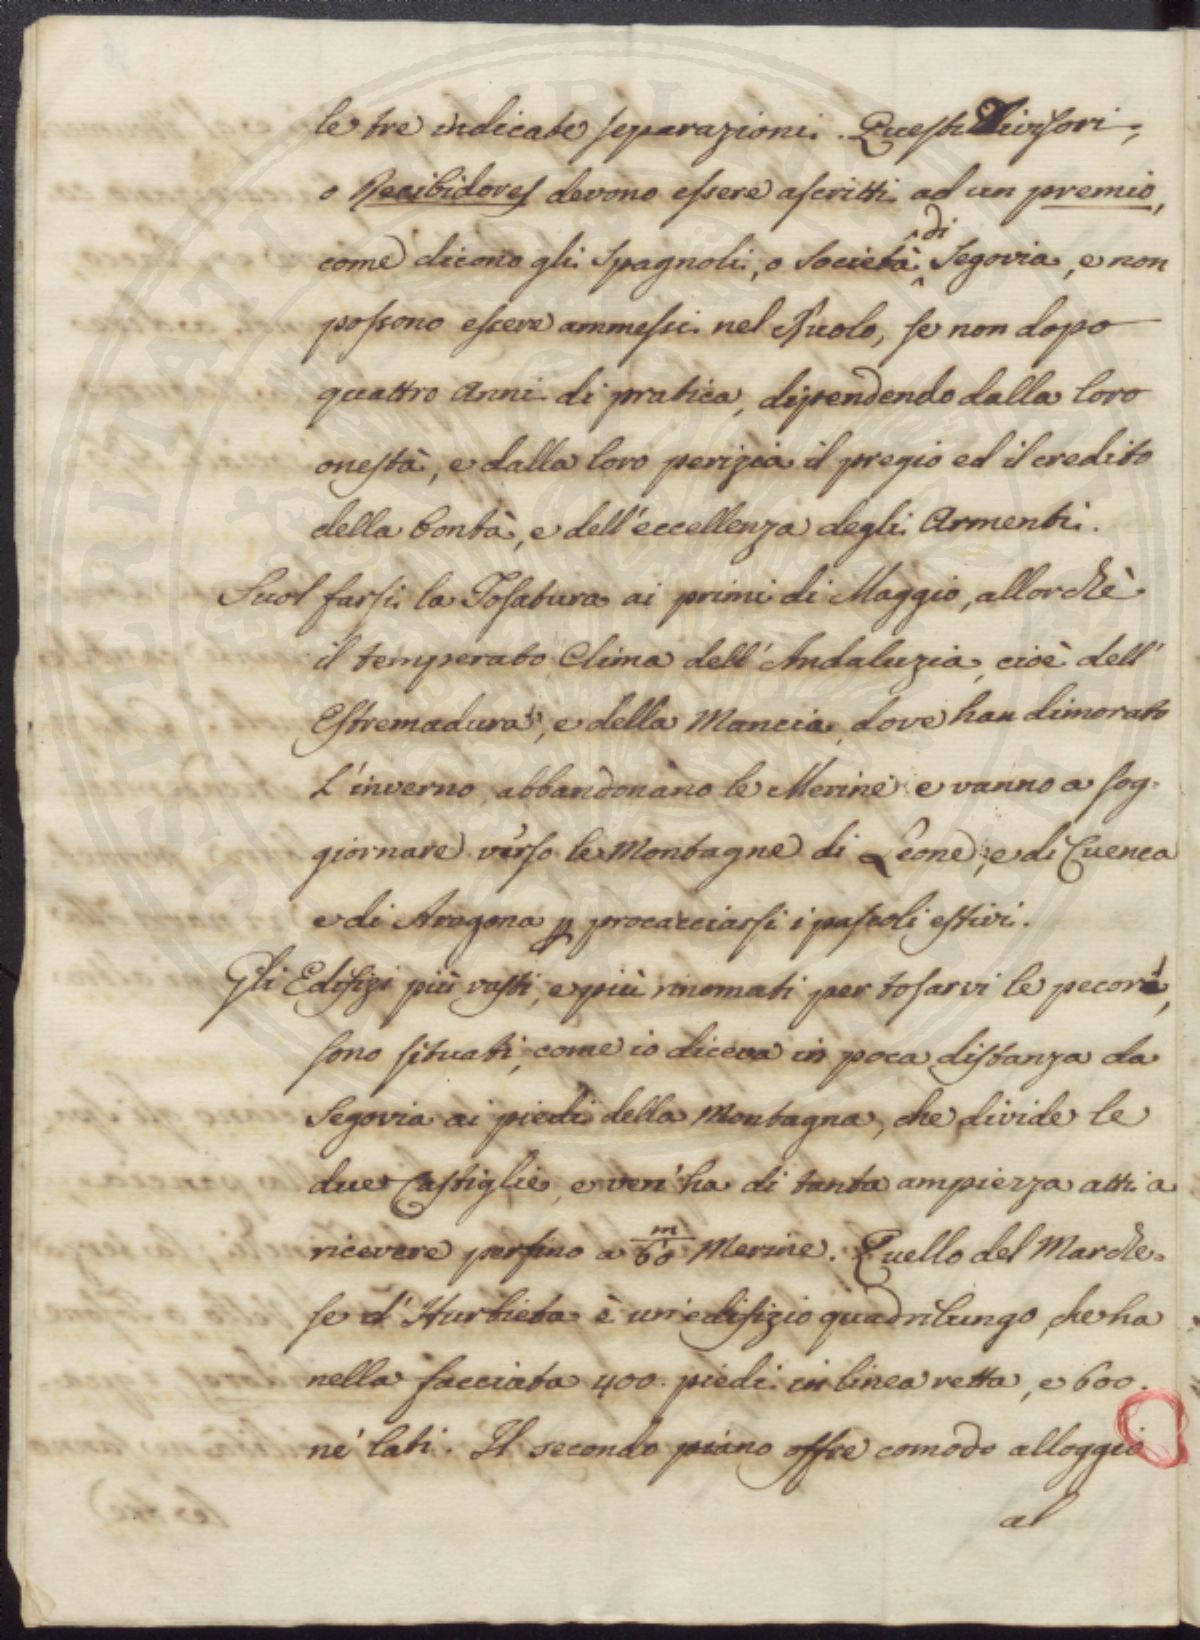 le tre indicate separazioni. Questi Divisori,
o Recibidores devono essere ascritti ad un premio,
come dicono gli Spagnoli, o Società di Segovia, e non
possono essere ammessi nel Ruolo, se non dopo
quattro Anni di pratica, dipendendo dalla loro
onestà, e dalla loro perizia il pregio ed il credito
della bontà, e dell'eccellenza degli Armenti.
Suol farsi la Tosatura ai primi di Maggio, allorchè
il temperato Clima dell'Andaluzia, cioè dell'
Estremadura, e della Mancia, dove han dimorato
l'inverno, abbandonano le Merine e vanno a sog-
giornare verso le Montagne di Leone, e di Cuenca
e di Aragona p procacciarsi i pascoli estivi.
Gli Edifizi più vasti, e più rinomati per tosarvi le pecore,
sono situati, come io diceva in poca distanza da
Segovia ai piedi della Montagna, che divide le
due Castiglie, e ven'ha di tanta ampiezza atti a
ricevere persino a m/60 Merine. Quello del Marche-
se d'Hurbieta è un'edifizio quadrilungo, che ha
nella facciata 400. piedi in linea retta, e 600.
ne' lati. Il secondo piano offre comodo alloggio
al